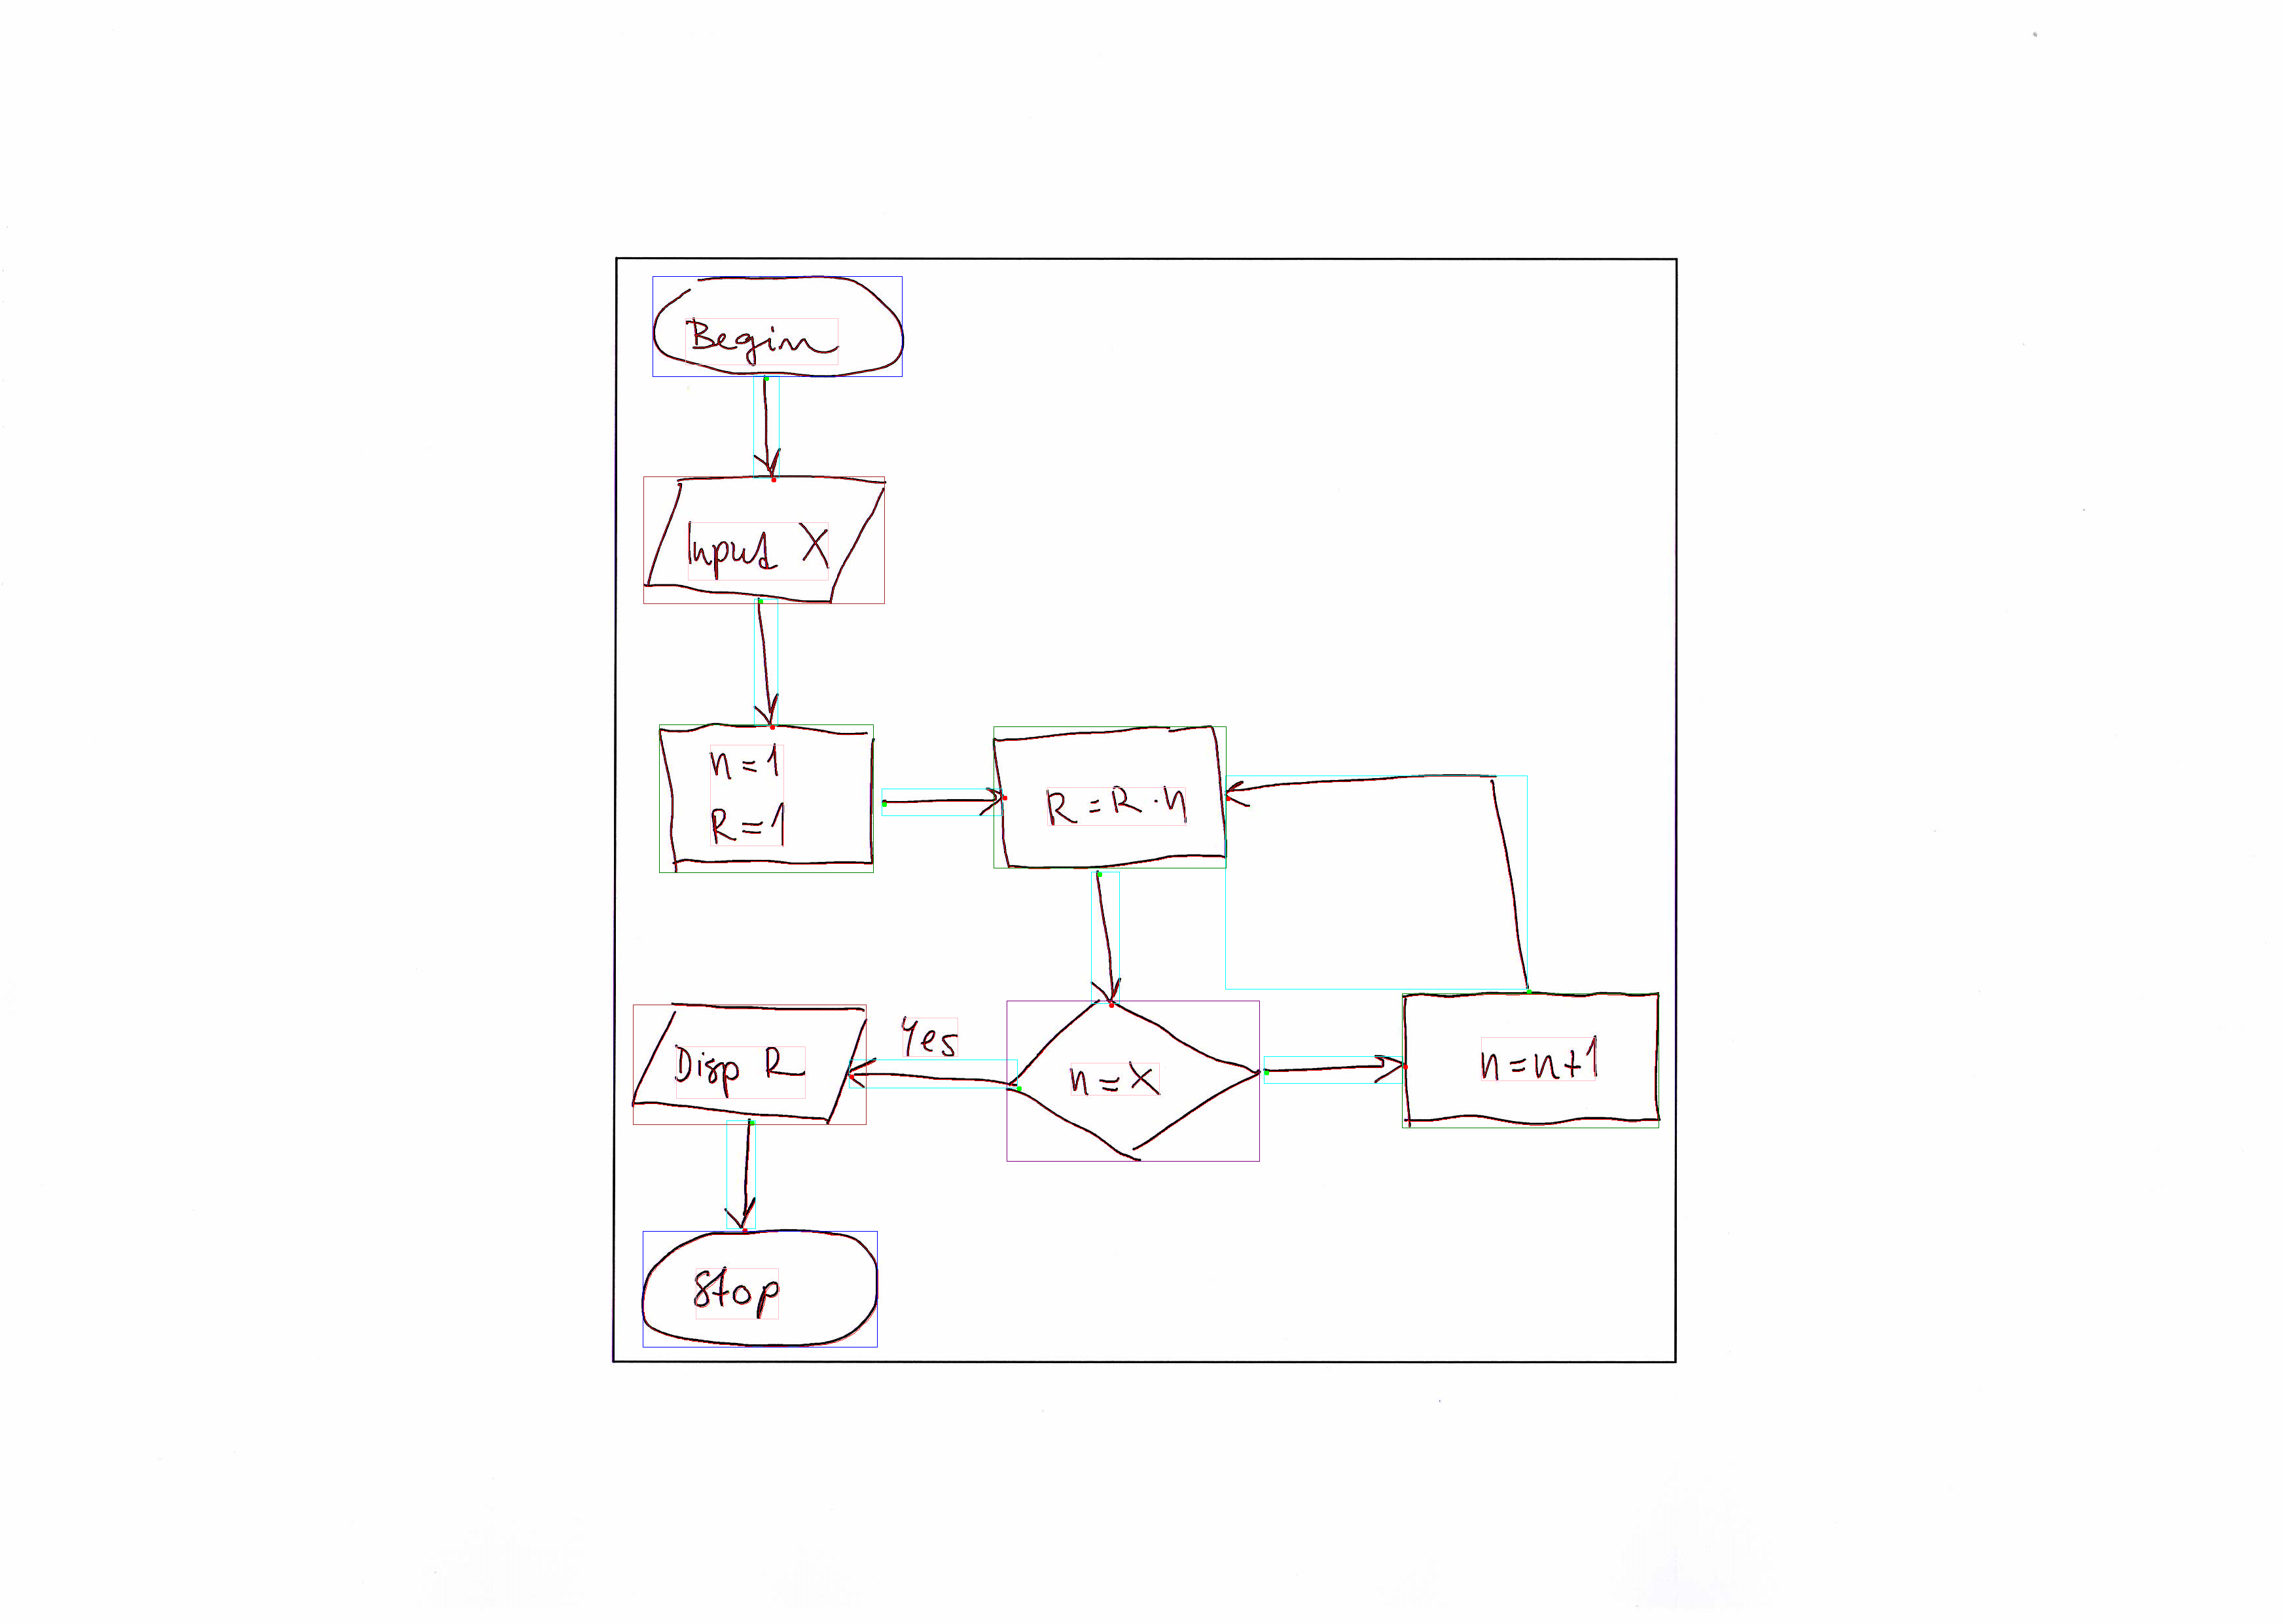 Begin
Input X
n=1
R=1
R=R·n
Yes
Disp R
n=X
n=n+1
Stop